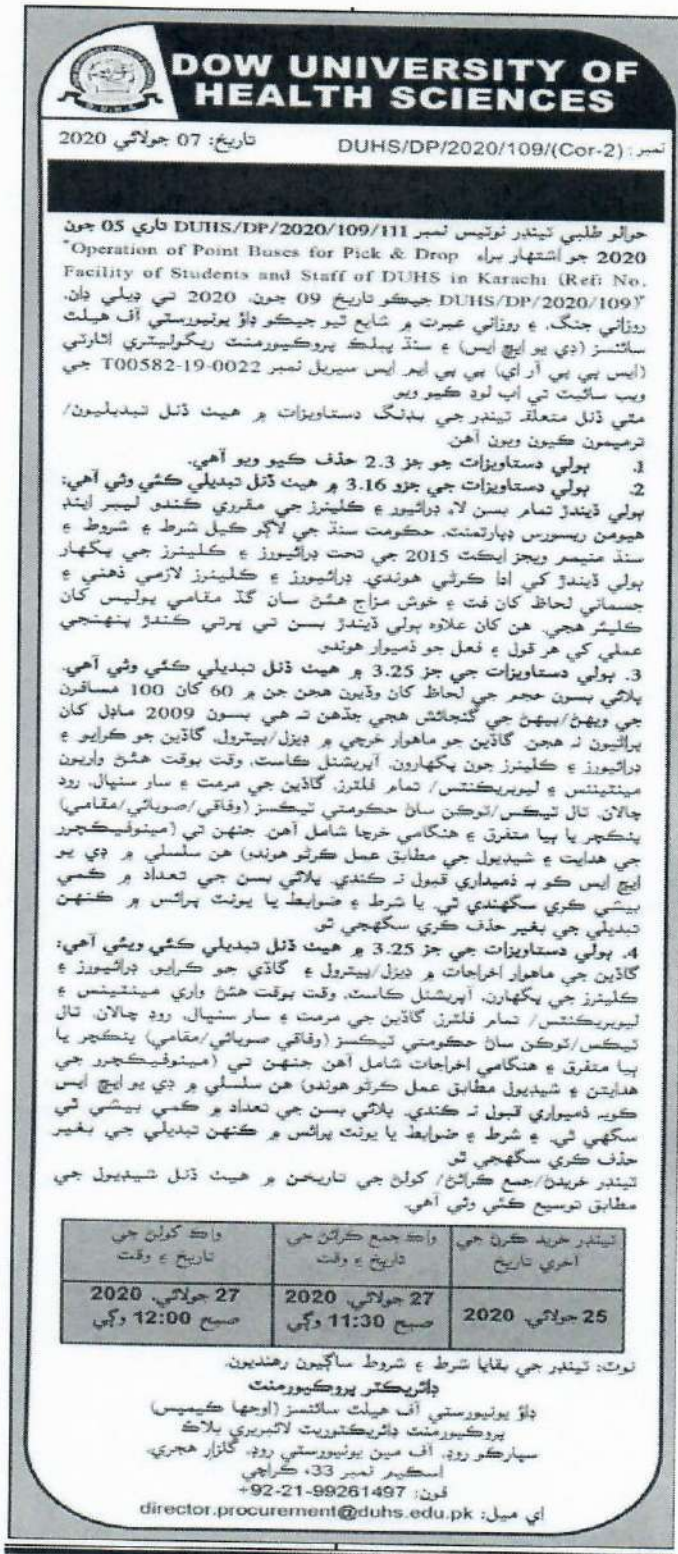 DOW UNIVERSITY OF
HEALTH SCIENCES
نمبر: DUHS/DP/2020/109/(Cor-2) تاريخ: 07 جولائي 2020
حوالو طلبي ٽينڊر نوٽيس نمبر DUHS/DP/2020/109/111 تاري 05 جون
2020 جو اشتهار براءِ "Operation of Point Buses for Pick & Drop
Facility of Students and Staff of DUHS in Karachi (Ref: No.
DUHS/DP/2020/109)" جيڪو تاريخ 09 جون، 2020 تي ڊيلي ڊان،
روزاني جنگ، ۽ روزاني عبرت ۾ شايع ٿيو جيڪو ڊاؤ يونيورسٽي آف هيلٿ
سائنسز (ڊي يو ايڇ ايس) ۽ سنڌ پبلڪ پروڪيورمنٽ ريگوليٽري اٿارٽي
(ايس پي پي آر اي) پي پي ايم ايس سيريل نمبر T00582-19-0022 جي
ويب سائيٽ تي اپ لوڊ ڪيو ويو.
مٿي ڏنل متعلقہ ٽينڊر جي بڊنگ دستاويزات ۾ هيٺ ڏنل تبديليون/
ترميمون ڪيون ويون آهن.
1. ٻولي دستاويزات جو جز 2.3 حذف ڪيو ويو آهي.
2. ٻولي دستاويزات جي جزو 3.16 ۾ هيٺ ڏنل تبديلي ڪئي وئي آهي:
ٻولي ڏيندڙ تمام بسن لاءِ ڊرائيور ۽ ڪلينرز جي مقرري ڪندو ليبر اينڊ
هيومن ريسورس ڊپارٽمنٽ، حڪومت سنڌ جي لاڳو ڪيل شرط ۽ شروط ۽
سنڌ منيمم ويجز ايڪٽ 2015 جي تحت ڊرائيورز ۽ ڪلينرز جي پگهار
ٻولي ڏيندڙ کي ادا ڪرڻي هوندي. ڊرائيورز ۽ ڪلينرز لازمي ذهني ۽
جسماني لحاظ کان فٽ ۽ خوش مزاج هئڻ سان گڏ مقامي پوليس کان
ڪليئر هجي. هن کان علاوه ٻولي ڏيندڙ بسن تي ڀرتي ڪندڙ پنهنجي
عملي کي هر قول ۽ فعل جو ذميوار هوندو.
3. ٻولي دستاويزات جي جز 3.25 ۾ هيٺ ڏنل تبديلي ڪئي وئي آهي.
پلائي بسون حجم جي لحاظ کان وڏيرن هجن جن ۾ 60 کان 100 مسافرن
جي ويهڻ/بيهڻ جي گنجائش هجي جڏهن تہ هي بسون 2009 ماڊل کان
پراڻيون نہ هجن. گاڏين جو ماهوار خرچي ۾ ڊيزل/پيٽرول، گاڏين جو ڪرايو ۽
ڊرائيورز ۽ ڪلينرز جون پگهارون، آپريشنل ڪاسٽ، وقت بوقت هئڻ واريون
مينٽيننس ۽ ليوبريڪنٽس/ تمام فلٽرز، گاڏين جي مرمت ۽ سار سنڀال، روڊ
چالان، ٽال ٽيڪس/ٽوڪن ساڻ حڪومتي ٽيڪسز (وفاقي/صوبائي/مقامي)
پنڪچر يا ٻيا متفرق ۽ هنگامي خرچا شامل آهن. جنهن تي (مينوفيڪچرر
جي هدايت ۽ شيڊيول جي مطابق عمل ڪرڻو هوندو) هن سلسلي ۾ ڊي يو
ايڇ ايس ڪو بہ ذميداري قبول نہ ڪندي. پلائي بسن جي تعداد ۾ ڪمي
بيشي ڪري سگهندي ٿي. يا شرط ۽ ضوابط يا يونٽ پرائس ۾ ڪنهن
تبديلي جي بغير حذف ڪري سگهجي ٿو.
4. ٻولي دستاويزات جي جز 3.25 ۾ هيٺ ڏنل تبديلي ڪئي ويئي آهي:
گاڏين جي ماهوار اخراجات ۾ ڊيزل/پيٽرول ۽ گاڏي جو ڪرايو، ڊرائيورز ۽
ڪلينرز جي پگهارن، آپريشنل ڪاسٽ، وقت بوقت هئڻ واري مينٽيننس ۽
ليوبريڪنٽس/ تمام فلٽرز، گاڏين جي مرمت ۽ سار سنڀال، روڊ چالان، ٽال
ٽيڪس/ٽوڪن ساڻ حڪومتي ٽيڪسز (وفاقي صوبائي/مقامي) پنڪچر يا
ٻيا متفرق ۽ هنگامي اخراجات شامل آهن جنهن تي (مينوفيڪچرر جي
هدايتن ۽ شيڊيول مطابق عمل ڪرڻو هوندو) هن سلسلي ۾ ڊي يو ايڇ ايس
ڪوبہ ذميواري قبول نہ ڪندي. پلائي بسن جي تعداد ۾ ڪمي بيشي ٿي
سگهي ٿي. ۽ شرط ۽ ضوابط يا يونٽ پرائس ۾ ڪنهن تبديلي جي بغير
حذف ڪري سگهجي ٿو.
ٽينڊر خريدڻ/جمع ڪرائڻ/ کولڻ جي تاريخن ۾ هيٺ ڏنل شيڊيول جي
مطابق توسيع ڪئي وئي آهي.
ٽينڊر خريد ڪرڻ جي آخري تاريخ | واڪ جمع ڪرائڻ جي تاريخ ۽ وقت | واڪ کولڻ جي تاريخ ۽ وقت
25 جولائي، 2020 | 27 جولائي، 2020 صبح 11:30 وڳي | 27 جولائي، 2020 صبح 12:00 وڳي
نوٽ: ٽينڊر جي بقايا شرط ۽ شروط ساڳيون رهنديون.
ڊائريڪٽر پروڪيورمنٽ
ڊاؤ يونيورسٽي آف هيلٿ سائنسز (اوجها ڪيمپس)
پروڪيورمنٽ ڊائريڪٽوريٽ لائبريري بلاڪ
سپارڪو روڊ، آف مين يونيورسٽي روڊ، گلزار هجري،
اسڪيم نمبر 33، ڪراچي
فون: 99261497-21-92+
اي ميل: director.procurement@duhs.edu.pk